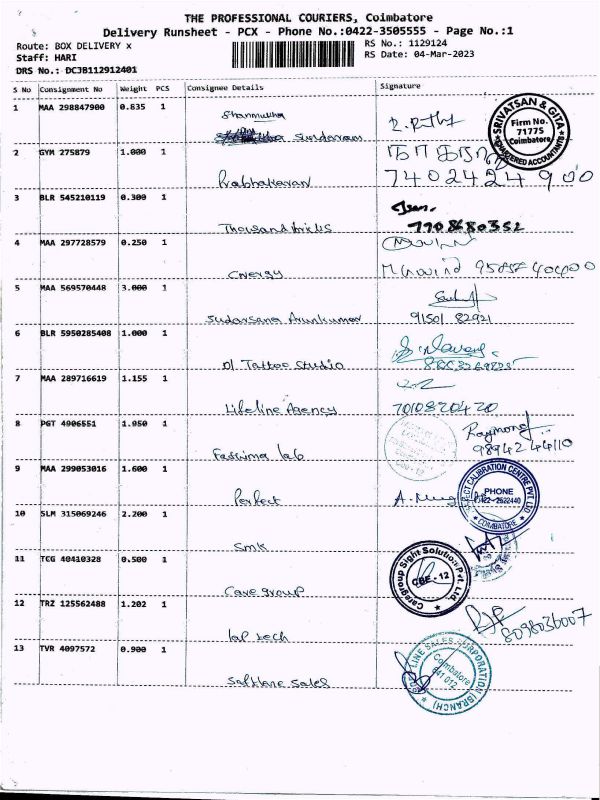 THE PROFESSIONAL COURIERS, Coimbatore
Delivery Runsheet - PCX - Phone No.:0422-3505555 - Page No.:1
Route: BOX DELIVERY x
RS No.: 1129124
Staff: HARI
RS Date: 04-Mar-2023
DRS No.: DCJB112912401
S No Consignment No Weight PCS Consignee Details Signature
1 MAA 298847900 0.835 1
Shanmukha
Sundaram
SRIVATSAN & GITA
Firm No.
7177S
Coimbatore
CHARTERED ACCOUNTANTS
2 GYM 275879 1.000 1
Prabhakaran
7402424900
3 BLR 545210119 0.300 1
Thousand tricks
7708680352
4 MAA 297728579 0.250 1
Energy
5 MAA 569570448 3.000 1
Sudarsana Arunkumar
91501 82921
6 BLR 5950285408 1.000 1
DL Tattoo Studio
7 MAA 289716619 1.155 1
Lifeline Agency
7010820420
8 PGT 4906551 1.050 1
lab
Raymond
98942 44110
9 MAA 299053016 1.600 1
Perfect
PERFECT CALIBRATION CENTRE PVT LTD
PHONE
0422-2622440
COIMBATORE
10 SLM 315069246 2.200 1
SMK
11 TCG 40410328 0.500 1
Care group
Caregroup Sight Solution Pvt. Ltd.
CBE - 12
12 TRZ 125562488 1.202 1
lap tech
8098036007
13 TVR 4097572 0.900 1
Softline Sales
LINE SALES CORPORATION
Coimbatore
641 012
(BRANCH)